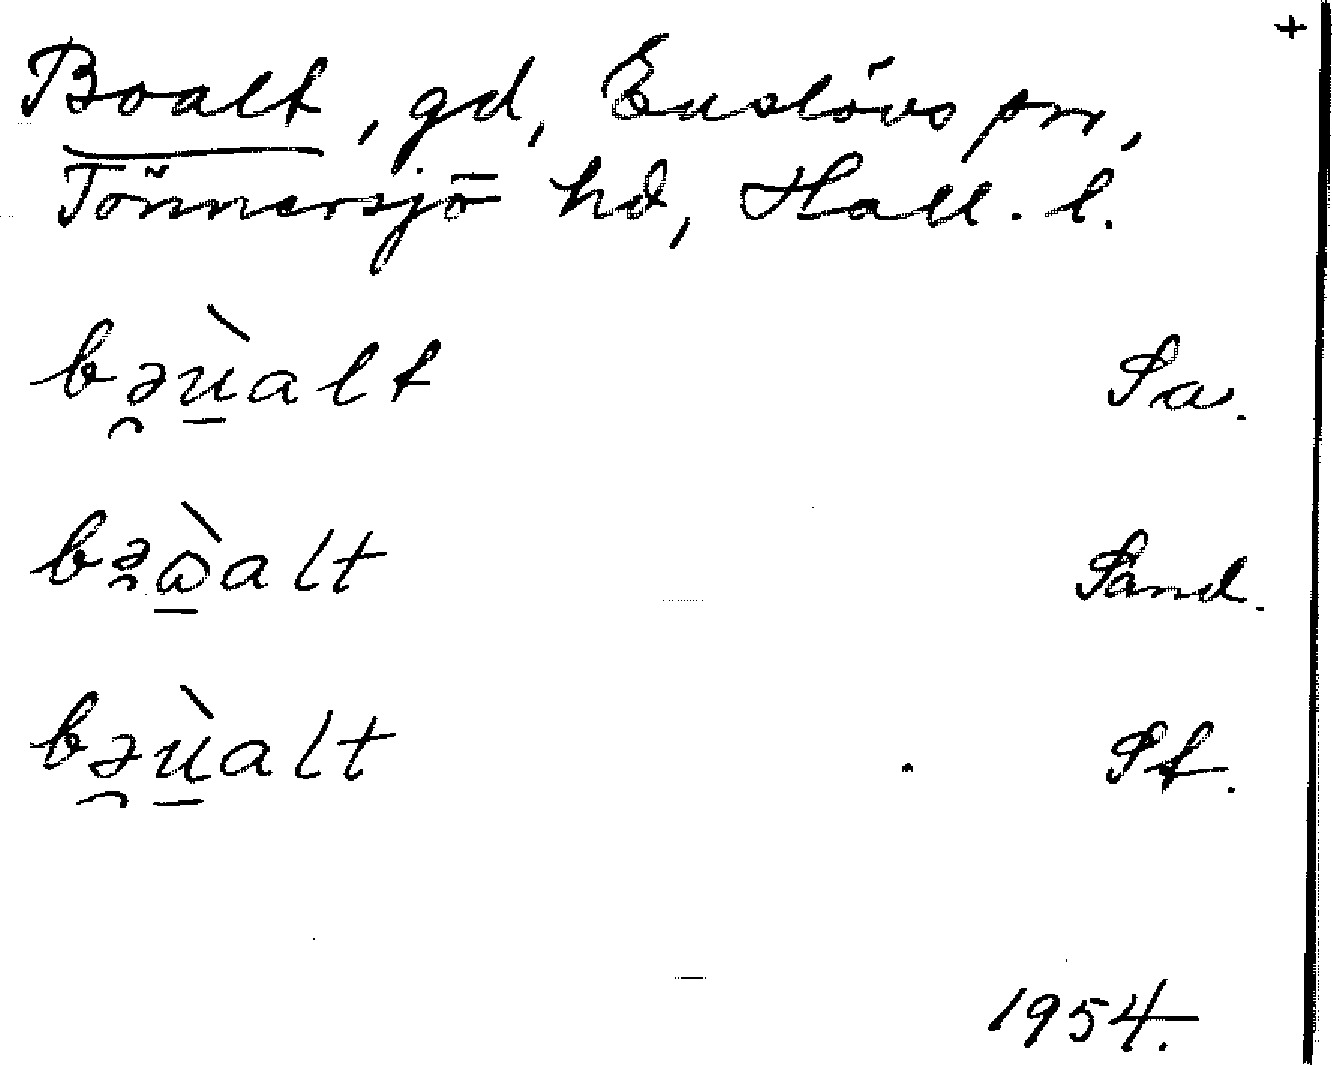 +
Boalt, gd, Enslövs sn,
Tönnersjö hd, Hall. l.
bə̯ṳ̀alt Sa.
bə̯ɷ̱̀alt Sand.
bə̯ṳ̀alt St.
1954.